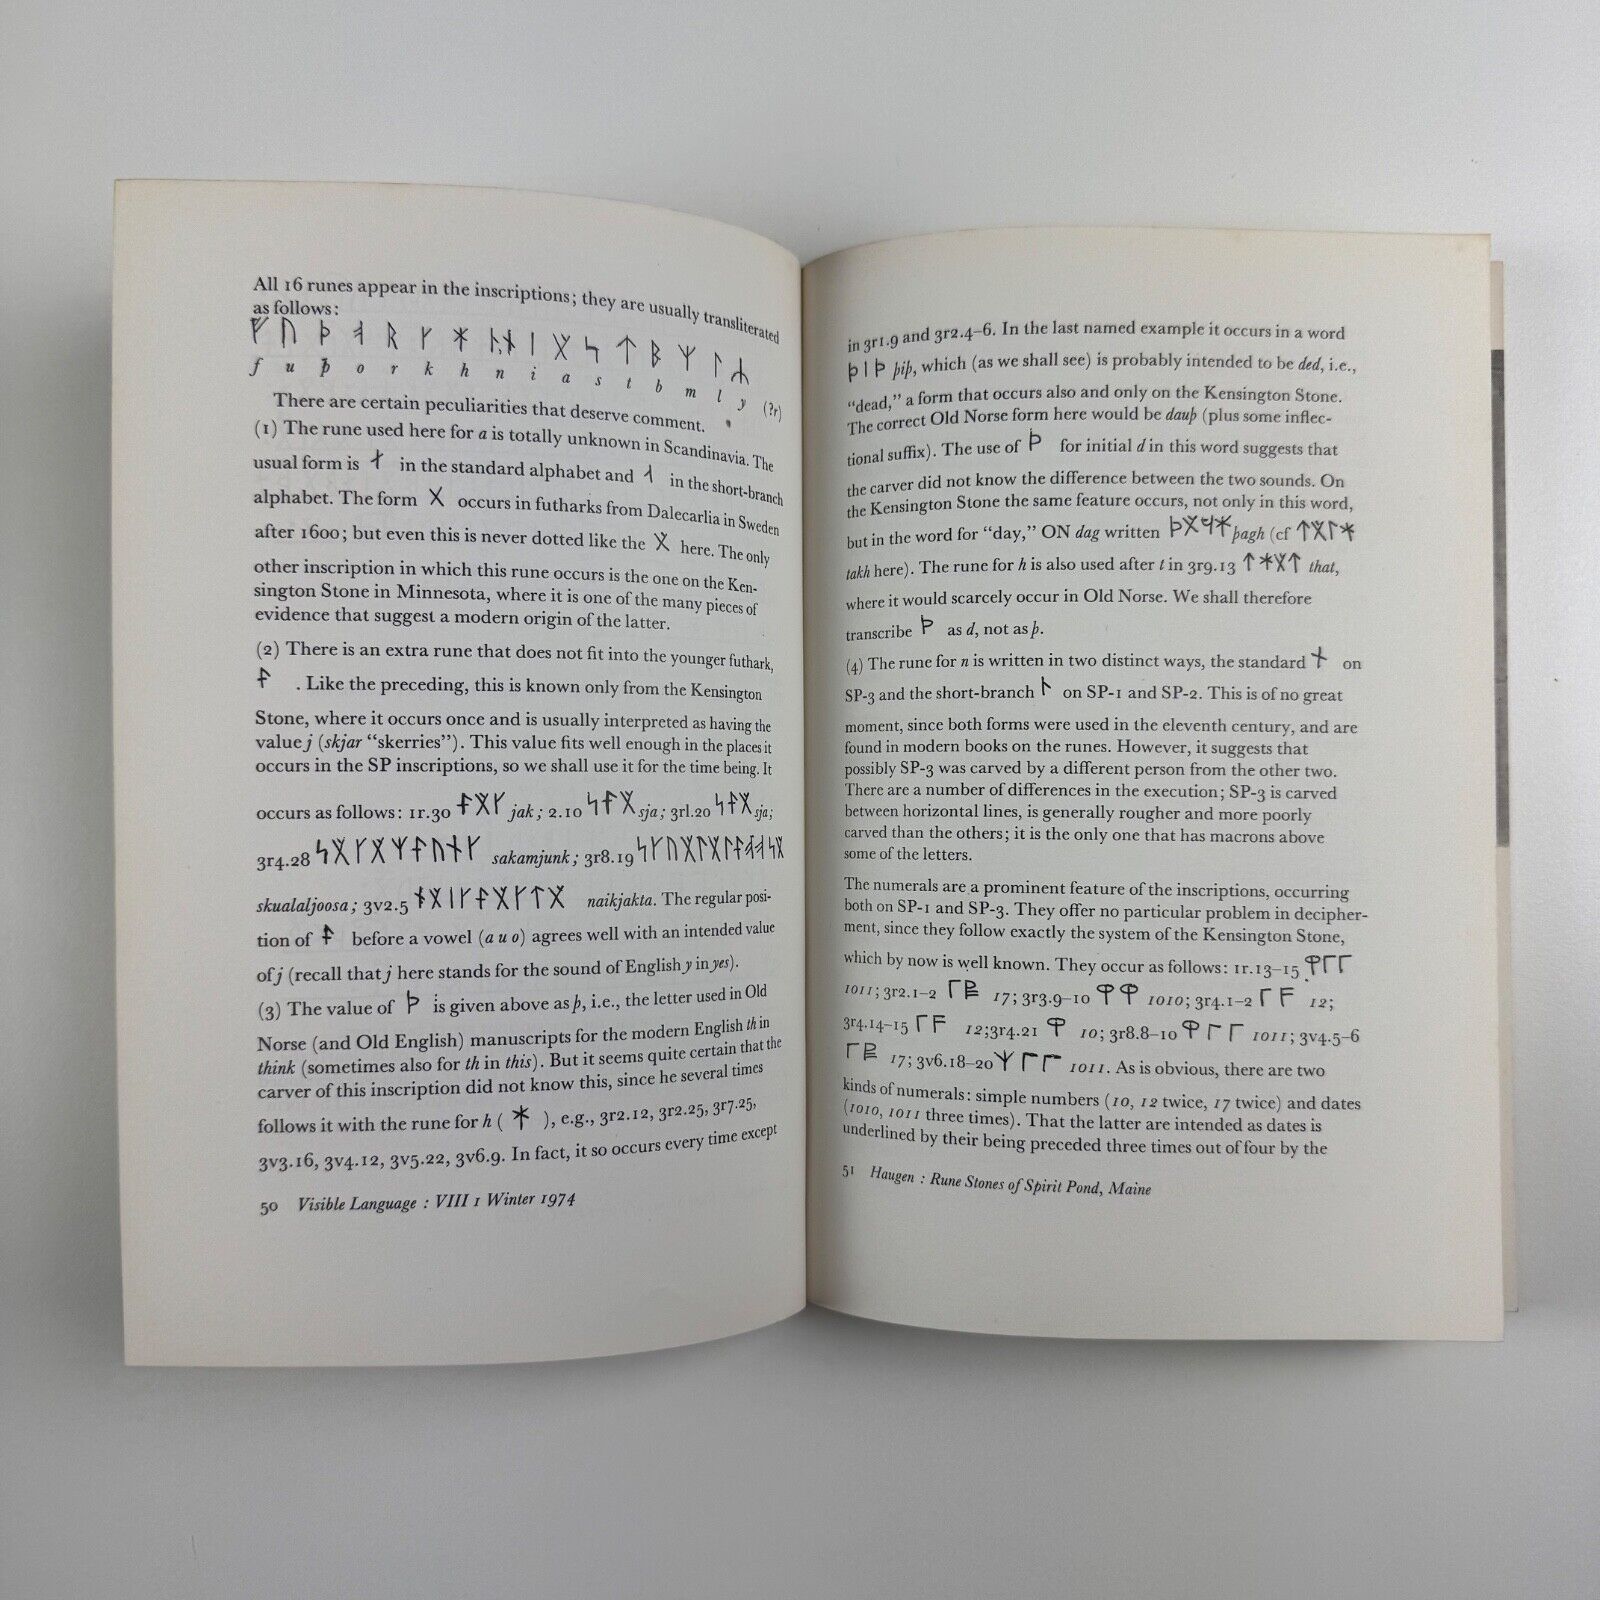 All 16 runes appear in the inscriptions; they are usually transliterated
as follows:
ᚠ ᚢ ᚦ ᚮ ᚱ ᚴ ᚼ ᚿ,ᚾ ᛁ ᚷ ᛋ ᛏ ᛒ ᛉ ᛚ ᛦ
f u þ o r k h n i a s t b m l y (?r)
There are certain peculiarities that deserve comment.
(1) The rune used here for a is totally unknown in Scandinavia. The
usual form is ᛅ in the standard alphabet and ᛆ in the short-branch
alphabet. The form ᚷ occurs in futharks from Dalecarlia in Sweden
after 1600; but even this is never dotted like the ᚷ here. The only
other inscription in which this rune occurs is the one on the Ken-
sington Stone in Minnesota, where it is one of the many pieces of
evidence that suggest a modern origin of the latter.
(2) There is an extra rune that does not fit into the younger futhark,
. Like the preceding, this is known only from the Kensington
Stone, where it occurs once and is usually interpreted as having the
value j (skjar "skerries"). This value fits well enough in the places it
occurs in the SP inscriptions, so we shall use it for the time being. It
occurs as follows: 1r.30 jak; 2.10 sja; 3rl.20 sja;
3r4.28 sakamjunk; 3r8.19
skualaljoosa; 3v2.5 naikjakta. The regular posi-
tion of before a vowel (a u o) agrees well with an intended value
of j (recall that j here stands for the sound of English y in yes).
(3) The value of ᚦ is given above as þ, i.e., the letter used in Old
Norse (and Old English) manuscripts for the modern English th in
think (sometimes also for th in this). But it seems quite certain that the
carver of this inscription did not know this, since he several times
follows it with the rune for h ( ᚼ ), e.g., 3r2.12, 3r2.25, 3r7.25,
3v3.16, 3v4.12, 3v5.22, 3v6.9. In fact, it so occurs every time except
50 Visible Language : VIII 1 Winter 1974
in 3r1.9 and 3r2.4–6. In the last named example it occurs in a word
ᚦᛁᚦ þiþ, which (as we shall see) is probably intended to be ded, i.e.,
"dead," a form that occurs also and only on the Kensington Stone.
The correct Old Norse form here would be dauþ (plus some inflec-
tional suffix). The use of ᚦ for initial d in this word suggests that
the carver did not know the difference between the two sounds. On
the Kensington Stone the same feature occurs, not only in this word,
but in the word for "day," ON dag written þagh (cf ᛏᚷᚴᚼ
takh here). The rune for h is also used after t in 3r9.13 ᛏᚼᚷᛏ that,
where it would scarcely occur in Old Norse. We shall therefore
transcribe ᚦ as d, not as þ.
(4) The rune for n is written in two distinct ways, the standard ᚾ on
SP-3 and the short-branch ᚿ on SP-1 and SP-2. This is of no great
moment, since both forms were used in the eleventh century, and are
found in modern books on the runes. However, it suggests that
possibly SP-3 was carved by a different person from the other two.
There are a number of differences in the execution; SP-3 is carved
between horizontal lines, is generally rougher and more poorly
carved than the others; it is the only one that has macrons above
some of the letters.
The numerals are a prominent feature of the inscriptions, occurring
both on SP-1 and SP-3. They offer no particular problem in decipher-
ment, since they follow exactly the system of the Kensington Stone,
which by now is well known. They occur as follows: 1r.13–15
1011; 3r2.1–2 17; 3r3.9–10 1010; 3r4.1–2 12;
3r4.14–15 12;3r4.21 10; 3r8.8–10 1011; 3v4.5–6
17; 3v6.18–20 1011. As is obvious, there are two
kinds of numerals: simple numbers (10, 12 twice, 17 twice) and dates
(1010, 1011 three times). That the latter are intended as dates is
underlined by their being preceded three times out of four by the
51 Haugen : Rune Stones of Spirit Pond, Maine